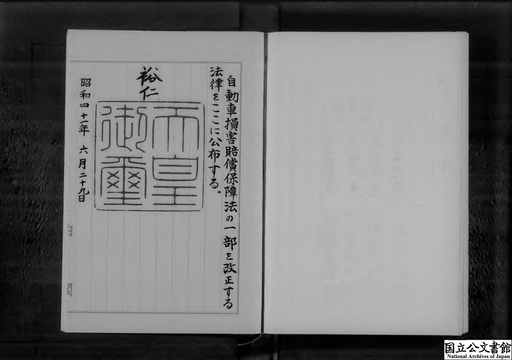 自動車損害賠償保障法の一部を改正する
法律をここに公布する。
裕仁
天皇
御璽
昭和四十一年 六月二十九日
国立公文書館
National Archives of Japan